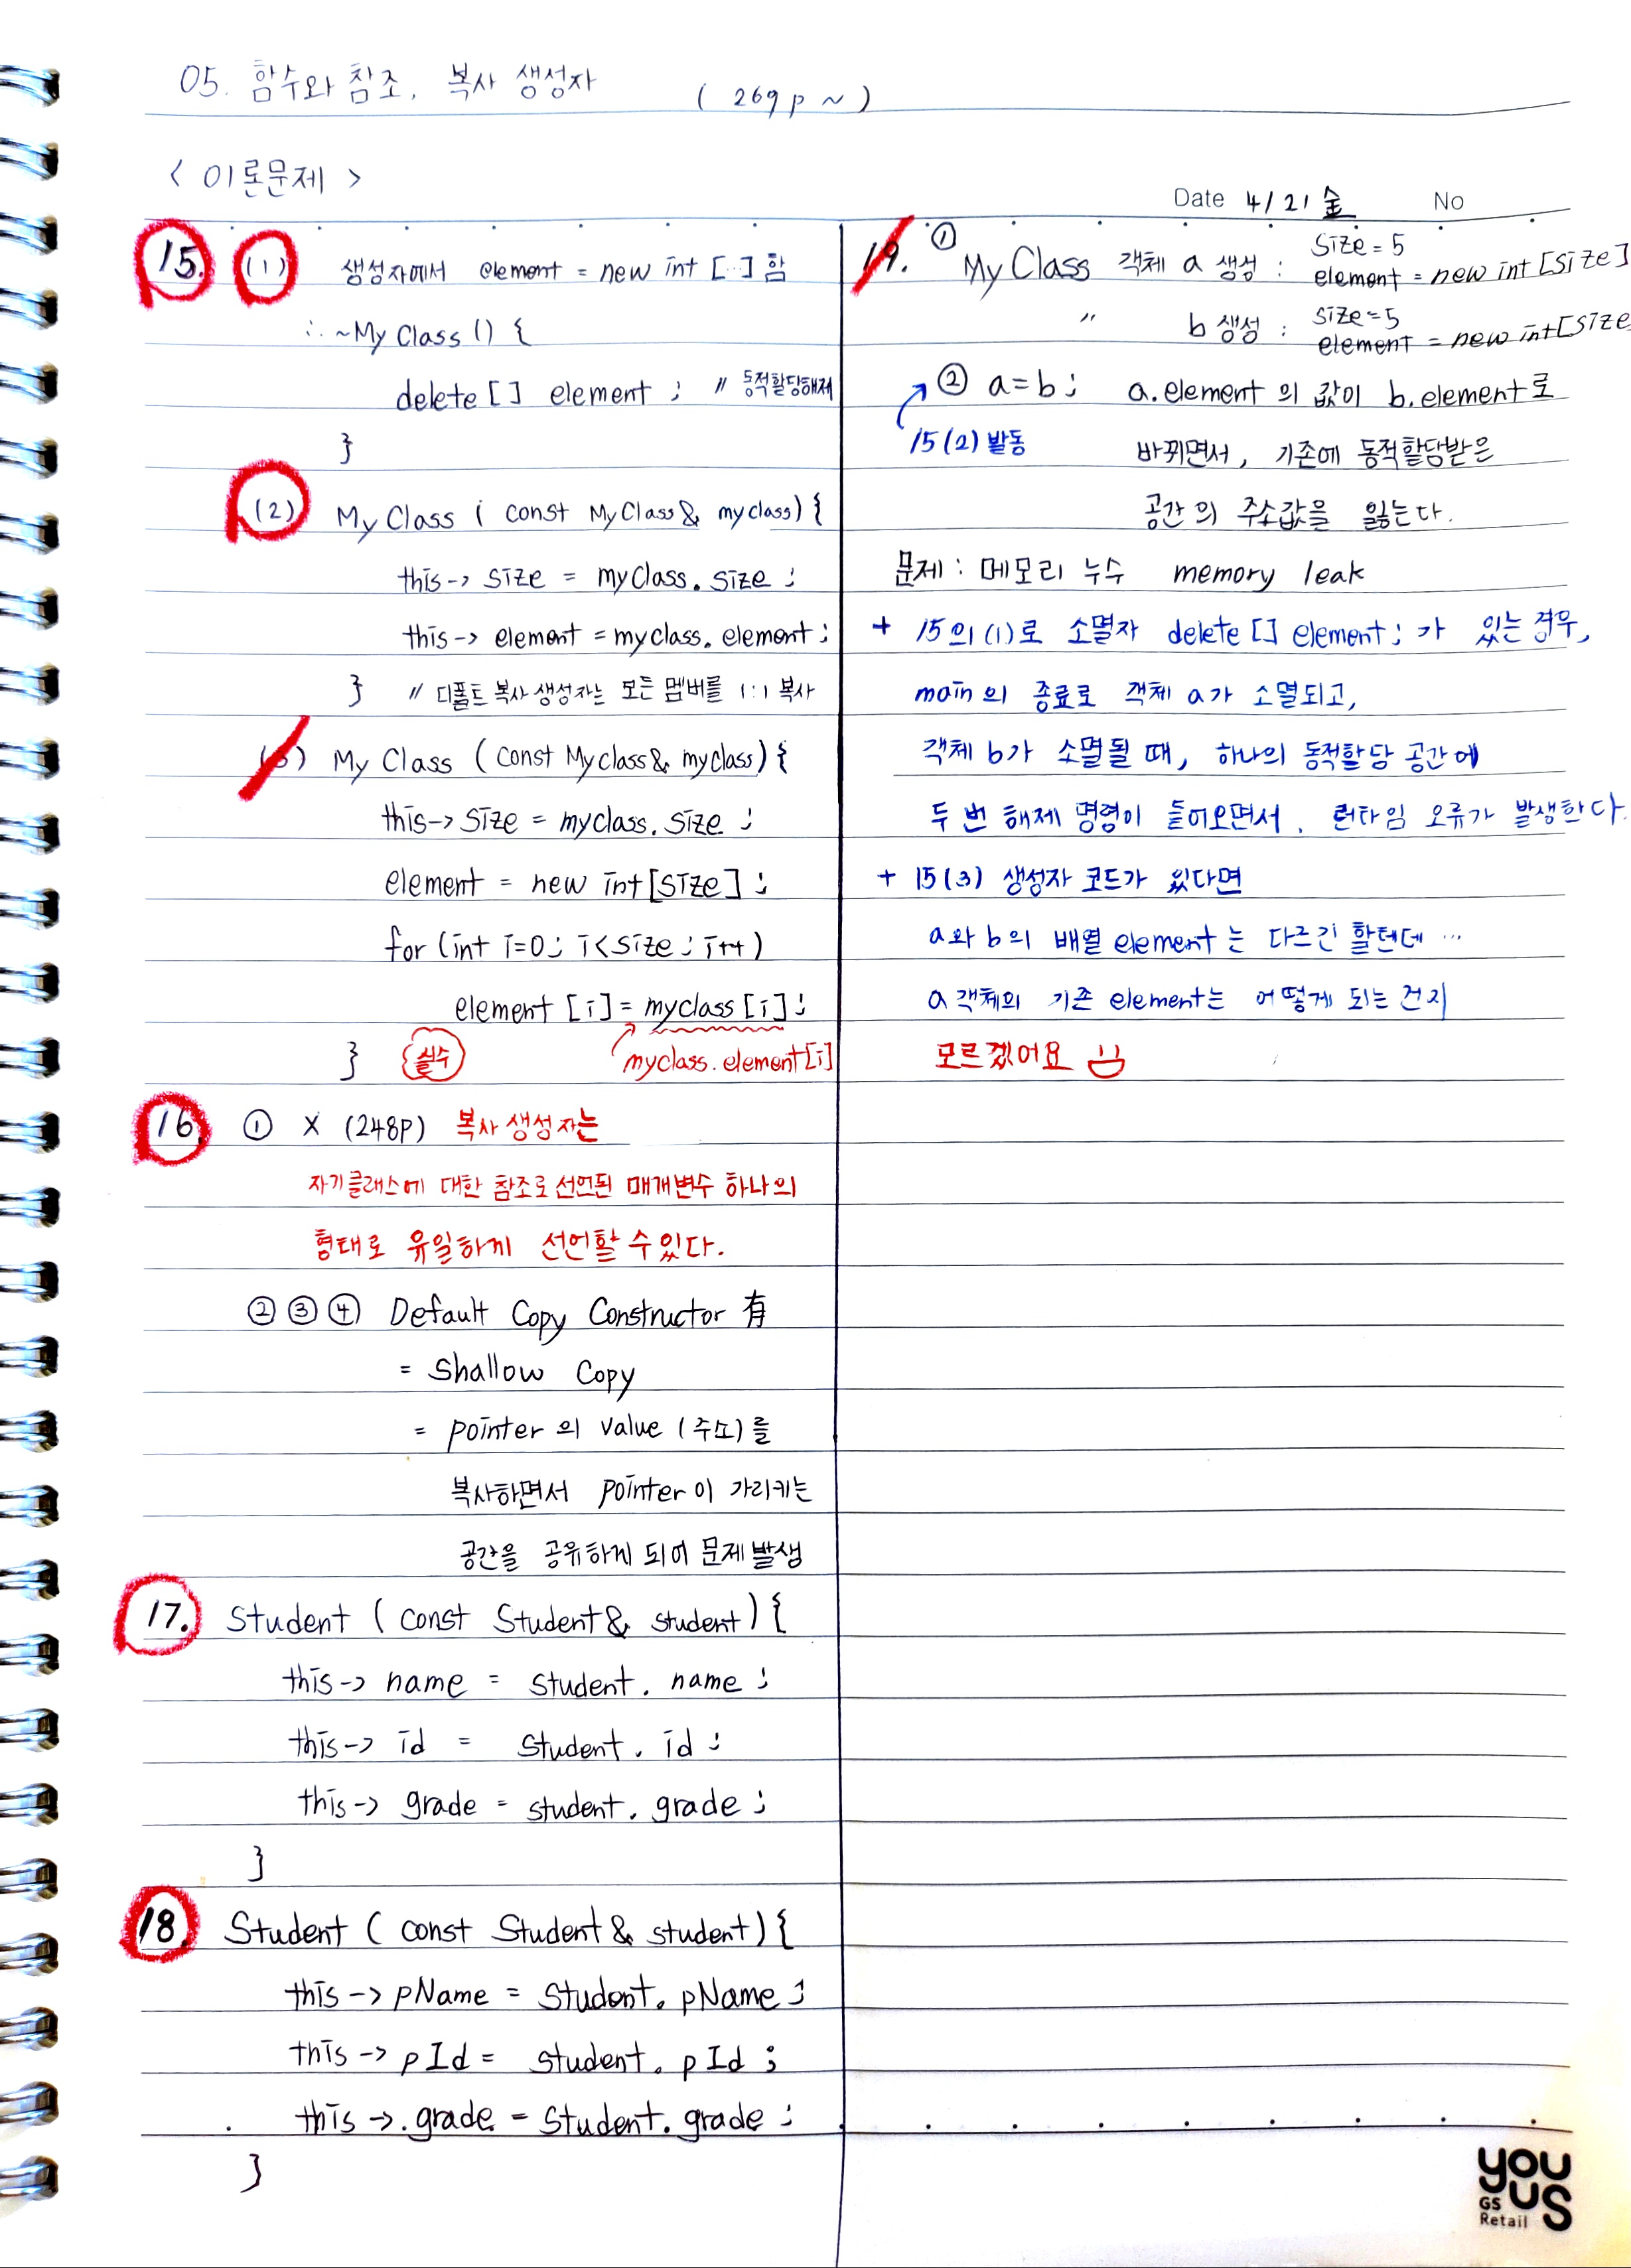 05. 함수와 참조, 복사 생성자 ( 269p ~ )
< 이론문제 >
Date 4/21 金 No
15. (1) 생성자에서 element = new int [...] 함
∴ ~My Class () {
delete [ ] element ; // 동적할당해제
}
(2) My Class ( const MyClass& myclass) {
this-> size = myclass. size ;
this-> element = myclass. element ;
} // 디폴트 복사 생성자는 모든 멤버를 1:1 복사
(3) My Class (const Myclass& myclass) {
this-> size = myclass. size ;
element = new int [size] ;
for (int i=0; i<size ; i++)
element [i] = myclass [i] ;
} 실수 myclass. element[i]
16. ① X (248P) 복사 생성자는
자기클래스에 대한 참조로 선언된 매개변수 하나의
형태로 유일하게 선언할 수 있다.
② ③ ④ Default Copy Constructor 有
= Shallow Copy
= pointer 의 value (주소) 를
복사하면서 pointer이 가리키는
공간을 공유하게 되어 문제 발생
17. Student ( const Student& student) {
this-> name = student. name ;
this-> id = student. id ;
this-> grade = student. grade ;
}
18. Student ( const Student& student) {
this-> pName = student. pName ;
this-> pId = student. pId ;
this->. grade = student. grade ;
}
19. ① My Class 객체 a 생성 : size = 5
element = new int [size]
〃 b 생성 : size = 5
element = new int [size
② a = b ; a. element 의 값이 b. element 로
15 (2) 발동 바뀌면서, 기존에 동적할당받은
공간의 주소값을 잃는다.
문제 : 메모리 누수 memory leak
+ 15의 (1)로 소멸자 delete [] element ; 가 있는 경우,
main의 종료로 객체 a가 소멸되고,
객체 b가 소멸될 때, 하나의 동적할당 공간에
두 번 해제 명령이 들어오면서, 런타임 오류가 발생한다.
+ 15 (3) 생성자 코드가 있다면
a와 b의 배열 element 는 다르긴 할텐데 ...
a 객체의 기존 element는 어떻게 되는 건지
모르겠어요
you
us
GS
Retail